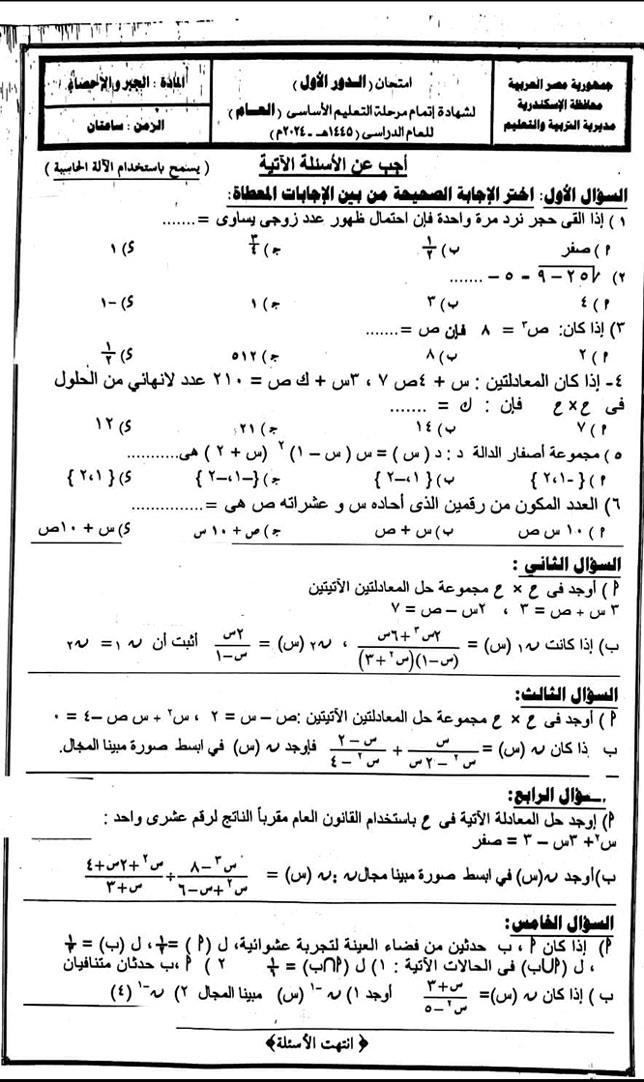 جمهورية مصر العربية
محافظة الإسكندرية
مديرية التربية والتعليم
امتحان (الدور الأول)
لشهادة إتمام مرحلة التعليم الأساسى (العام)
للعام الدراسى (١٤٤٥هـ - ٢٠٢٤م)
المادة : الجبر والإحصاء
الزمن : ساعتان
أجب عن الأسئلة الآتية
( يسمح باستخدام الآلة الحاسبة )
السؤال الأول: اختر الإجابة الصحيحة من بين الإجابات المعطاة:
١ ) إذا القى حجر نرد مرة واحدة فإن احتمال ظهور عدد زوجى يساوى = .......
٩ ) صفر ب) ١/٢ جـ) ٣/٤ ى) ١
٢) √(٢٥ - ٩) - ٥ = .......
٩ ) ٤ ب) ٣ جـ) ١ ى) -١
٣) إذا كان: ص³ = ٨ فإن ص = .......
٩ ) ٢ ب) ٨ جـ) ٥١٢ ى) ١/٢
٤- إذا كان المعادلتين : س + ٤ص ٧ ، ٣س + ك ص = ٢١٠ عدد لانهائي من الحلول
فى ع×ع فإن : ك = .......
٩ ) ٧ ب) ١٤ جـ) ٢١ ى) ١٢
٥ ) مجموعة أصفار الدالة د : د ( س ) = س ( س - ١)² (س + ٢ ) هى..........
٩ ) {-٢،١} ب) {-٢،١} جـ) {-٢،-١} ى) {٢،١}
٦) العدد المكون من رقمين الذى أحاده س و عشراته ص هى = ...............
٩ ) ١٠ س ص ب) س + ص جـ) ص + ١٠ س ى) س + ١٠ص
السؤال الثاني :
٩ ) أوجد فى ع × ع مجموعة حل المعادلتين الآتيتين
٣ س + ص = ٣ ، ٢س - ص = ٧
ب) إذا كانت ن١ (س) = (٢س³ + ٦س)/((س-١)(س² + ٣)) ، ن٢ (س) = ٢س/(س-١) أثبت أن ن١ = ن٢
السؤال الثالث:
٩ ) أوجد فى ع × ع مجموعة حل المعادلتين الآتيتين :ص - س = ٢ ، س² + س ص -٤ = ٠
ب ذا كان ن (س) = س/(س² - ٢س) + (س - ٢)/(س² - ٤) فاوجد ن (س) في ابسط صورة مبينا المجال.
ـسؤال الرابع:
٩) إوجد حل المعادلة الآتية فى ع باستخدام القانون العام مقرباً الناتج لرقم عشرى واحد :
س² + ٣س - ٣ = صفر
ب)أوجد ن(س) في ابسط صورة مبينا مجال ن :ن (س) = (س³ - ٨)/(س² + س - ٦) ÷ (س² + ٢س + ٤)/(س + ٣)
السؤال الخامس:
٩) إذا كان ٩ ، ب حدثين من فضاء العينة لتجربة عشوائية، ل (٩) = ، ل (ب) =
، ل (٩∪ب) فى الحالات الآتية : ١) ل (٩∩ب) = ٢ ) ٩ ،ب حدثان متنافيان
ب ) إذا كان ن (س)= (س+٣)/(س² - ٥) أوجد ١) ن⁻¹ (س) مبينا المجال ٢) ن⁻¹ (٤)
﴿ انتهت الأسئلة﴾